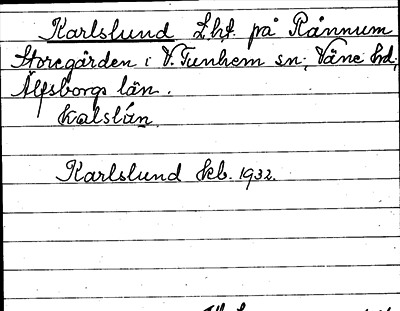 Karlslund Lht. på Rånnum
Storegården i V. Tunhem sn; Väne hd;
Älfsborgs län.
kalslún
Karlslund Jkb. 1932.